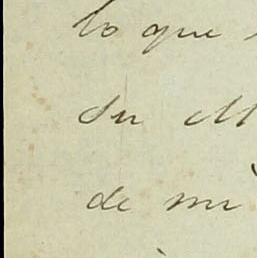 lo que
Su M
de mi